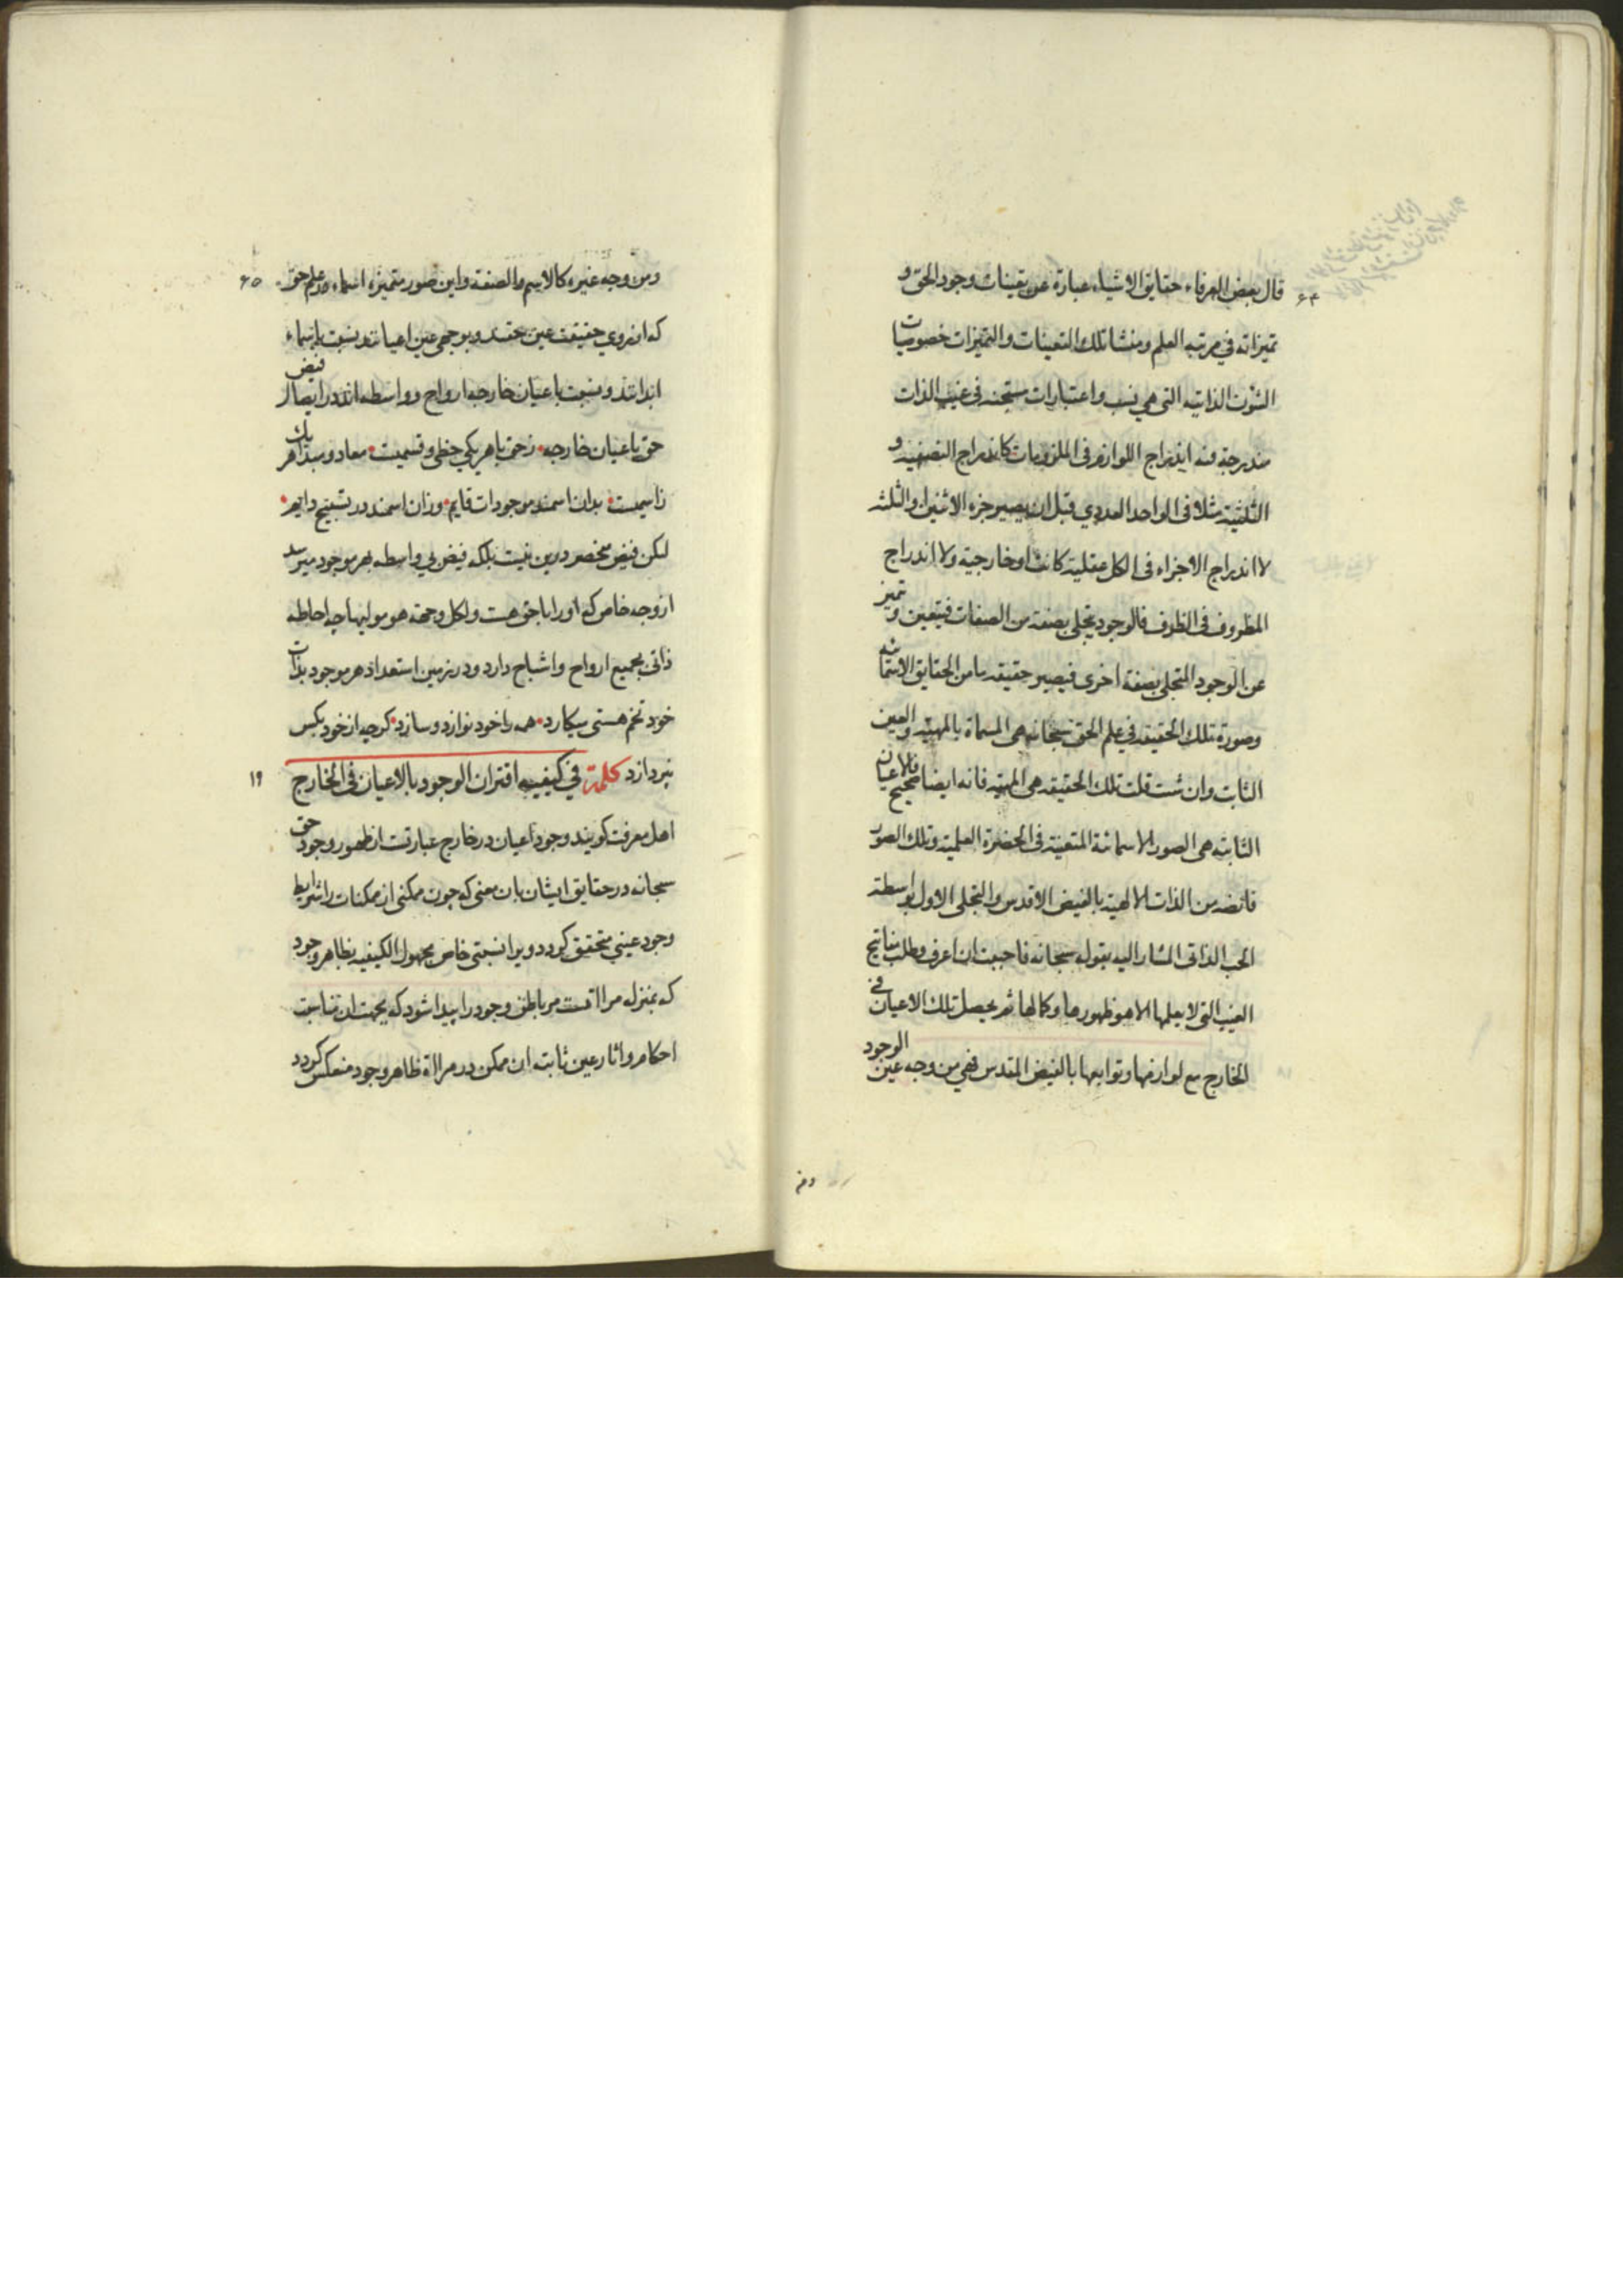 قال بعض العرفاء حقایق الاشیاء عبارة عن تعینات وجود الحق و
تمیزاته فی مرتبه العلم و منشا تلك التعینات و التمیزات خصوصیات
الشؤن الذاتیه التی هی نسب و اعتبارات مستجنه فی غیب الذات
مندرجة فیه اندراج اللوازم فی الملزومات کاندراج النصفیه و
الثلثیه مثلا فی الواحد العددی قبل ان یصیر جزء الاثنین او الثلثه
لا اندراج الاجزاء فی الکل عقلیة کانت او خارجیة ولا اندراج
المظروف فی الظرف فالوجود یتجلی بصفة من الصفات فیتعین و تمیز
عن الوجود المتجلی بصفة اخری فیصیر حقیقه ما من الحقایق الاسمائیه
وصورة تلك الحقیقه فی علم الحق سبحانه هی المسماة بالمهیه و العین
الثابت وان شئت قلت تلك الحقیقه هی المهیه فانه ایضا صحیح فالاعیان
الثابته هی الصور الاسمائیة المتعینه فی الحضرة العلمیه و تلك الصور
فائضه من الذات الالهیه بالفیض الاقدس و التجلی الاول بواسطه
الحب الذاتی المشار الیه بقوله سبحانه فاحببت ان اعرف و طلب مفاتیح
الغیب التی لا یعلمها الا هو ظهورها و کمالها ثم یحصل تلك الاعیان فی
الخارج مع لوازمها و توابعها بالفیض المقدس فهی من وجه عین الوجود
۶۴
ومن
ومن وجه غیره کالاسم و الصفة و این صور متمیزه اسماء در علم حق
۶۵
که از روی حقیقت عین حقند و بوجهی عین اعیانند نسبت باسماء
ابدانند و نسبت باعیان خارجه ارواح و واسطه اند در ایصال فیض
حق باعیان خارجه • زحق با هر یکی حظی و قسمیست • معاد و مبدا هر یك
زاسمیست • بدان اسمند موجودات قایم • وزان اسمند در تسبیح دایم •
لکن فیض منحصر درین نیست بلکه فیض بی واسطه بهر موجود میرسد
از وجه خاص که او را با حق هست ولکل وجهة هو مولیها چه احاطه
ذاتی بجمیع ارواح و اشباح دارد و در زمین استعداد هر موجود بذات
خود تخم هستی میکارد • همه را خود نوازد و سازد • کرچه از خود بکس
نپردازد کلمة فی کیفیه اقتران الوجود بالاعیان فی الخارج
۱۹
اهل معرفت کویند وجود اعیان در خارج عبارتست از ظهور وجود حق
سبحانه در حقایق ایشان بان معنی که چون ممکنی از ممکنات را شرایط
وجود عینی متحقق کردد ویرا نسبتی خاص مجهول الکیفیه بظاهر وجود
که بمنزله مراتست مر باطن وجود را پیدا شود که بجهت ان مناسبت
احکام و اثار عین ثابته ان ممکن در مراة ظاهر وجود منعکس کردد